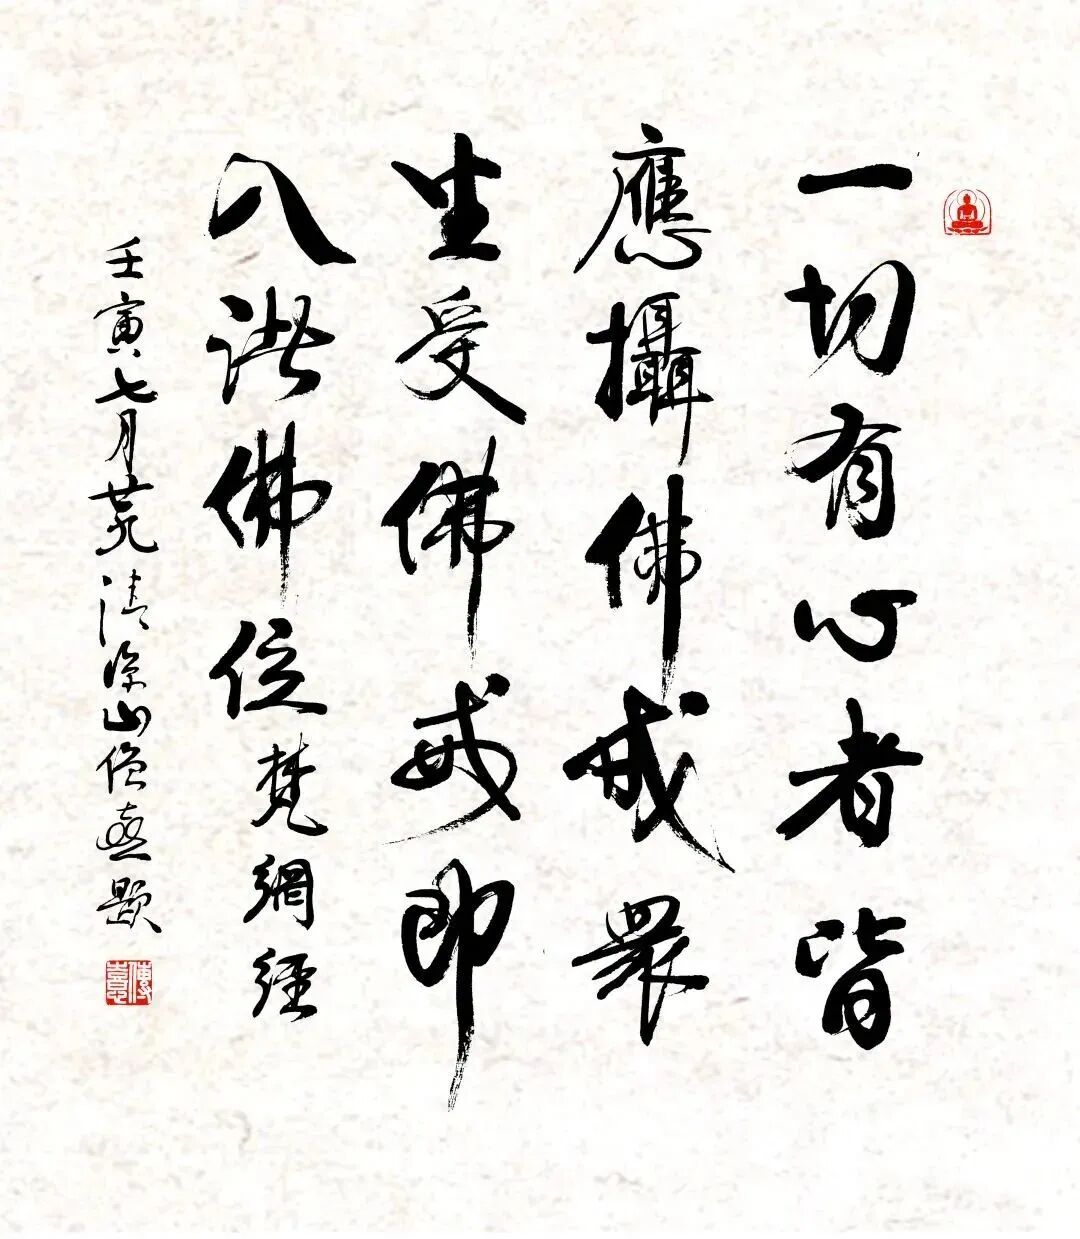 一切有心者皆
應攝佛戒眾
生受佛戒即
入諸佛位梵網經
壬寅七月廿九清涼山僧題